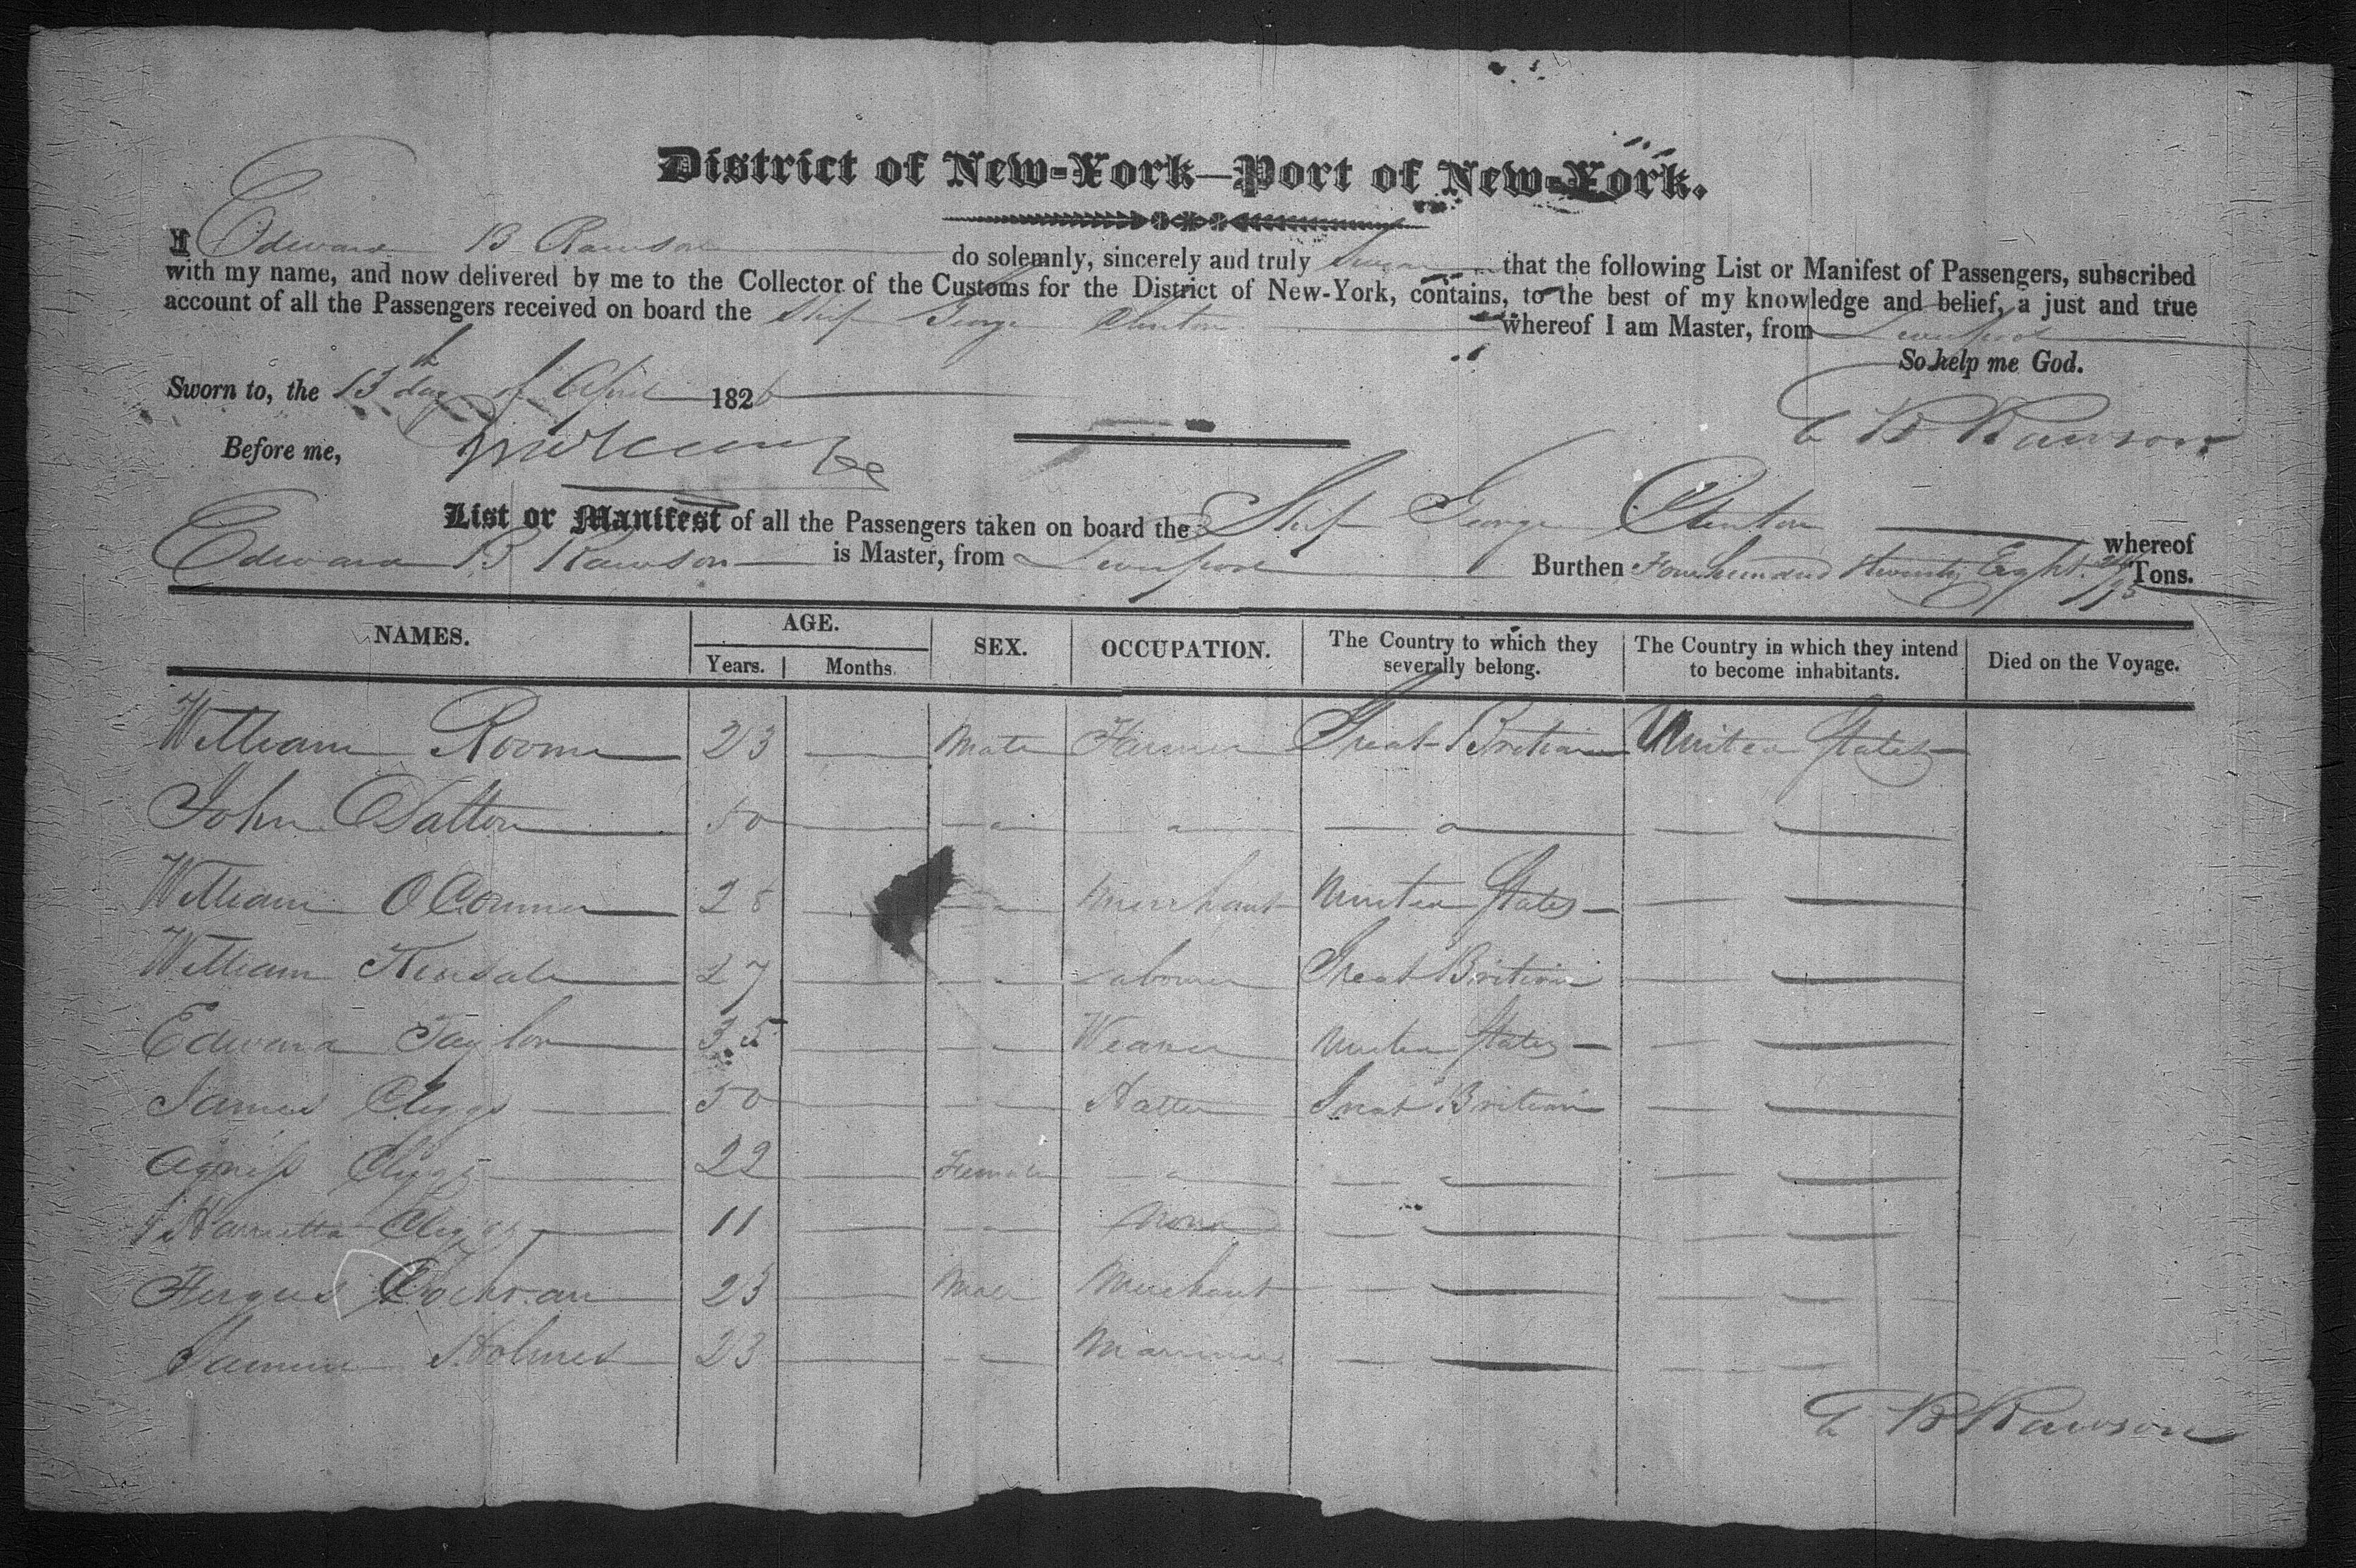 District of New-York—Port of New-York.
I Edward B Rawson do solemnly, sincerely and truly Swear that the following List or Manifest of Passengers, subscribed
with my name, and now delivered by me to the Collector of the Customs for the District of New-York, contains, to the best of my knowledge and belief, a just and true
account of all the Passengers received on board the Ship George Clinton whereof I am Master, from Liverpool
So help me God.
Sworn to, the 13th day of April 1826
E B Rawson
Before me,
List or Manifest of all the Passengers taken on board the Ship George Clinton whereof
Edward B Rawson is Master, from Liverpool Burthen Four hundred twenty Eight Tons.
NAMES. AGE. SEX. OCCUPATION. The Country to which they severally belong. The Country in which they intend to become inhabitants. Died on the Voyage.
Years. Months.
William Room 23 Male Farmer Great Britian United States
John Dalton 50
William OConner 28 Merchant United States
William Tinsdale 27 Labourer Great Britian
Edward Taylor 35 Weaver United States
James Cleggs 50 Hatter Great Britian
Agness Cleggs 22 Female
Harrietta Cleggs 11 None
Fergus Cochran 23 Male Merchant
Holmes 23 Mariner
E B Rawson